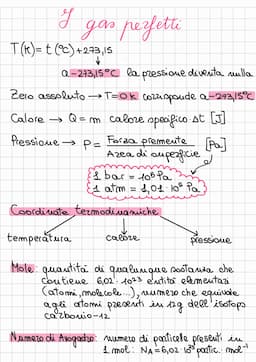 I gas perfetti
T(K) = t(°C) + 273,15
a -273,15°C la pressione diventa nulla
Zero assoluto → T = 0 K corrisponde a -273,15°C
Calore → Q = m calore specifico Δt [J]
Pressione → P = Forza premente / Area di superficie [Pa]
1 bar = 10⁵ Pa
1 atm = 1,01·10⁵ Pa
Coordinate termodinamiche
temperatura calore pressione
Mole: quantità di qualunque sostanza che
contiene 6,02·10²³ entità elementari
(atomi, molecole..), numero che equivale
agli atomi presenti in 12g dell'isotopo
carbonio-12
Numero di Avogadro: numero di particelle presenti in
1 mol: NA = 6,02·10²³ partic. mol⁻¹